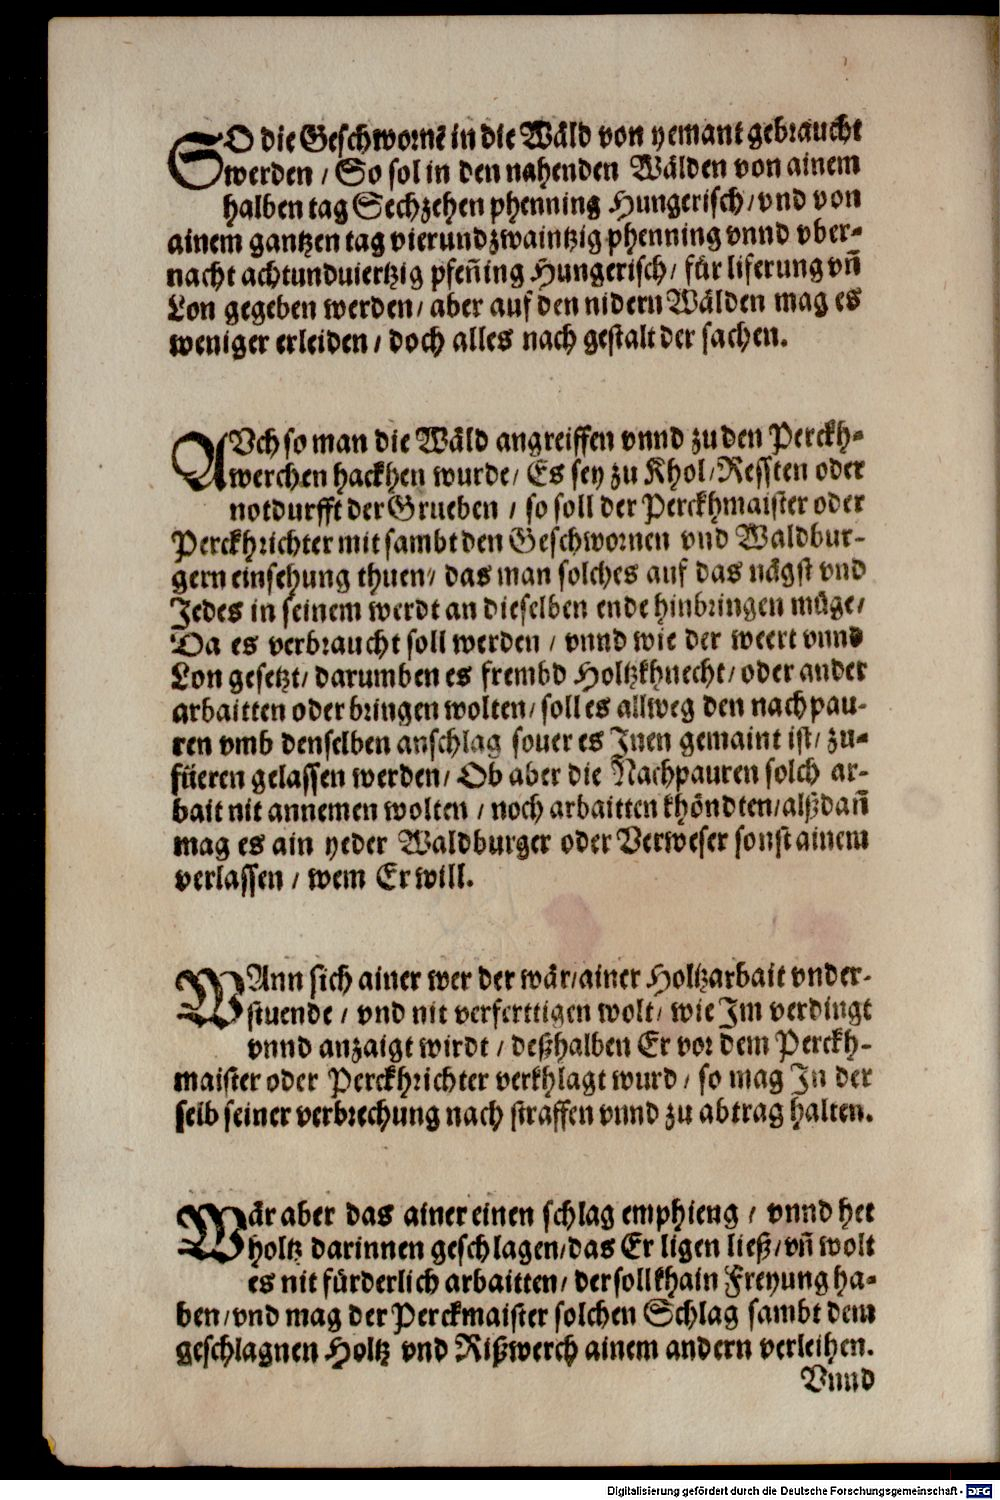 SO die Geschwornē in die Wäld von yemant gebraucht
werden / So sol in den nahenden Wälden von ainem
halben tag Sechzehen phenning Hungerisch / vnd von
ainem gantzen tag vierundzwaintzig phenning vnnd vber-
nacht achtunduiertzig pfeñing Hungerisch / für liferung vñ
Lon gegeben werden / aber auf den nidern Wälden mag es
weniger erleiden / doch alles nach gestalt der sachen.
AVch so man die Wäld angreiffen vnnd zu den Perckh-
werchen hackhen wurde / Es sey zu Khol / Ressten oder
notdurfft der Grueben / so soll der Perckhmaister oder
Perckhrichter mit sambt den Geschwornen vnd Waldbur-
gern einsehung thuen / das man solches auf das nägst vnd
Jedes in seinem werdt an dieselben ende hinbringen müge /
Da es verbraucht soll werden / vnnd wie der weert vnnd
Lon gesetzt / darumben es frembd Holtzkhnecht / oder ander
arbaitten oder bringen wolten / soll es allweg den nachpau-
ren vmb denselben anschlag souer es Jnen gemaint ist / zu-
füeren gelassen werden / Ob aber die Nachpauren solch ar-
bait nit annemen wolten / noch arbaitten khöndten / alßdañ
mag es ain yeder Waldburger oder Verweser sonst ainem
verlassen / wem Er will.
WAnn sich ainer wer der wär / ainer Holtzarbait vnder-
stuende / vnd nit verferttigen wolt / wie Jm verdingt
vnnd anzaigt wirdt / deßhalben Er vor dem Perckh-
maister oder Perckhrichter verkhlagt wurd / so mag Jn der
selb seiner verbrechung nach straffen vnnd zu abtrag halten.
Wär aber das ainer einen schlag emphieng / vnnd het
holtz darinnen geschlagen / das Er ligen ließ / vñ wolt
es nit fürderlich arbaitten / der soll khain Freyung ha-
ben / vnd mag der Perckmaister solchen Schlag sambt dem
geschlagnen Holtz vnd Rißwerch ainem andern verleihen.
Vnnd
Digitalisierung gefördert durch die Deutsche Forschungsgemeinschaft - DFG